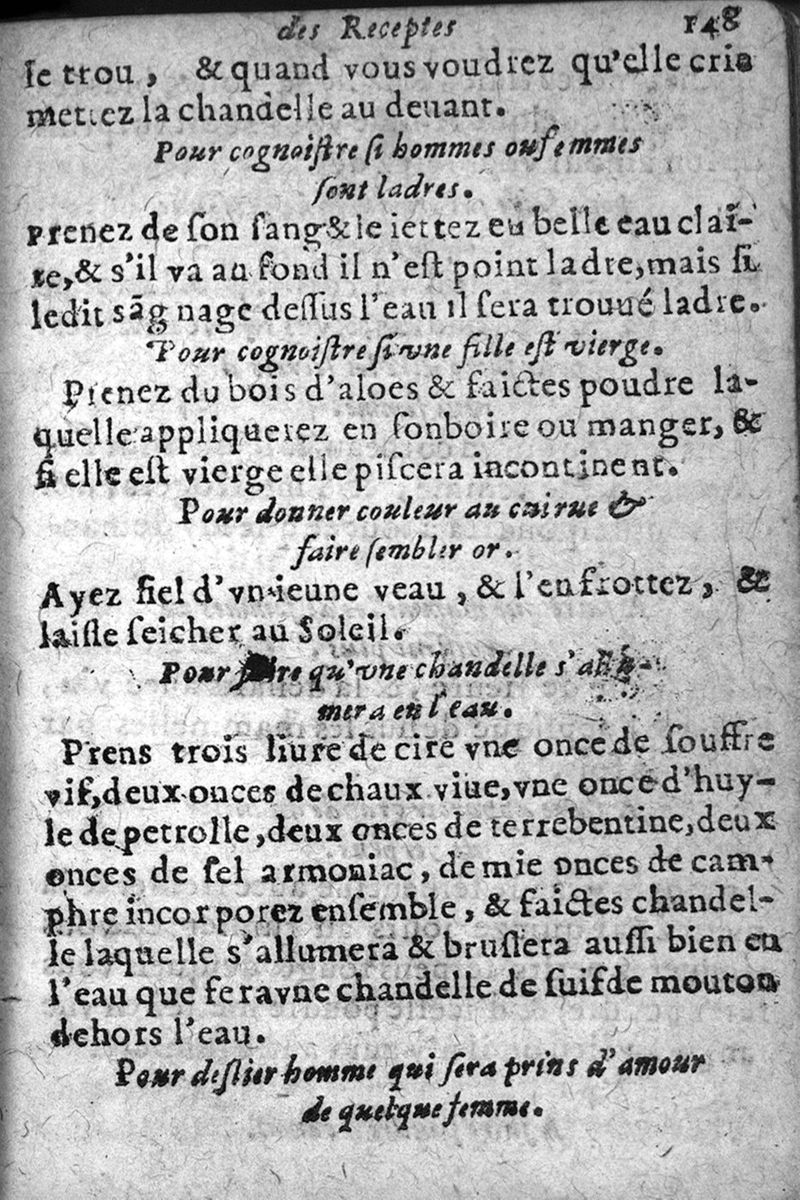 des Receptes 148
le trou, & quand vous voudrez qu'elle crie
mettez la chandelle au deuant.
Pour cognoiſtre ſi hommes ou femmes
ſont ladres.
Prenez de ſon ſang & le iettez en belle eau clai-
re, & s'il va au fond il n'eſt point ladre, mais ſi
ledit sãg nage deſſus l'eau il ſera trouué ladre.
Pour cognoiſtre ſi vne fille eſt vierge.
Prenez du bois d'aloes & faictes poudre la-
quelle appliquerez en ſon boire ou manger, &
ſi elle eſt vierge elle piſſera incontinent.
Pour donner couleur au cuirue &
faire ſembler or.
Ayez fiel d'vn ieune veau, & l'en frottez, &
laiſſe ſeicher au Soleil.
Pour faire qu'vne chandelle s'allu-
mera en l'eau.
Prens trois liure de cire vne once de ſouffre
vif, deux onces de chaux viue, vne once d'huy-
le de petrolle, deux onces de terrebentine, deux
onces de ſel armoniac, demie onces de cam-
phre incorporez enſemble, & faictes chandel-
le laquelle s'allumera & bruſlera auſſi bien en
l'eau que fera vne chandelle de ſuif de mouton
dehors l'eau.
Pour deſlier homme qui ſera prins d'amour
de quelque femme.